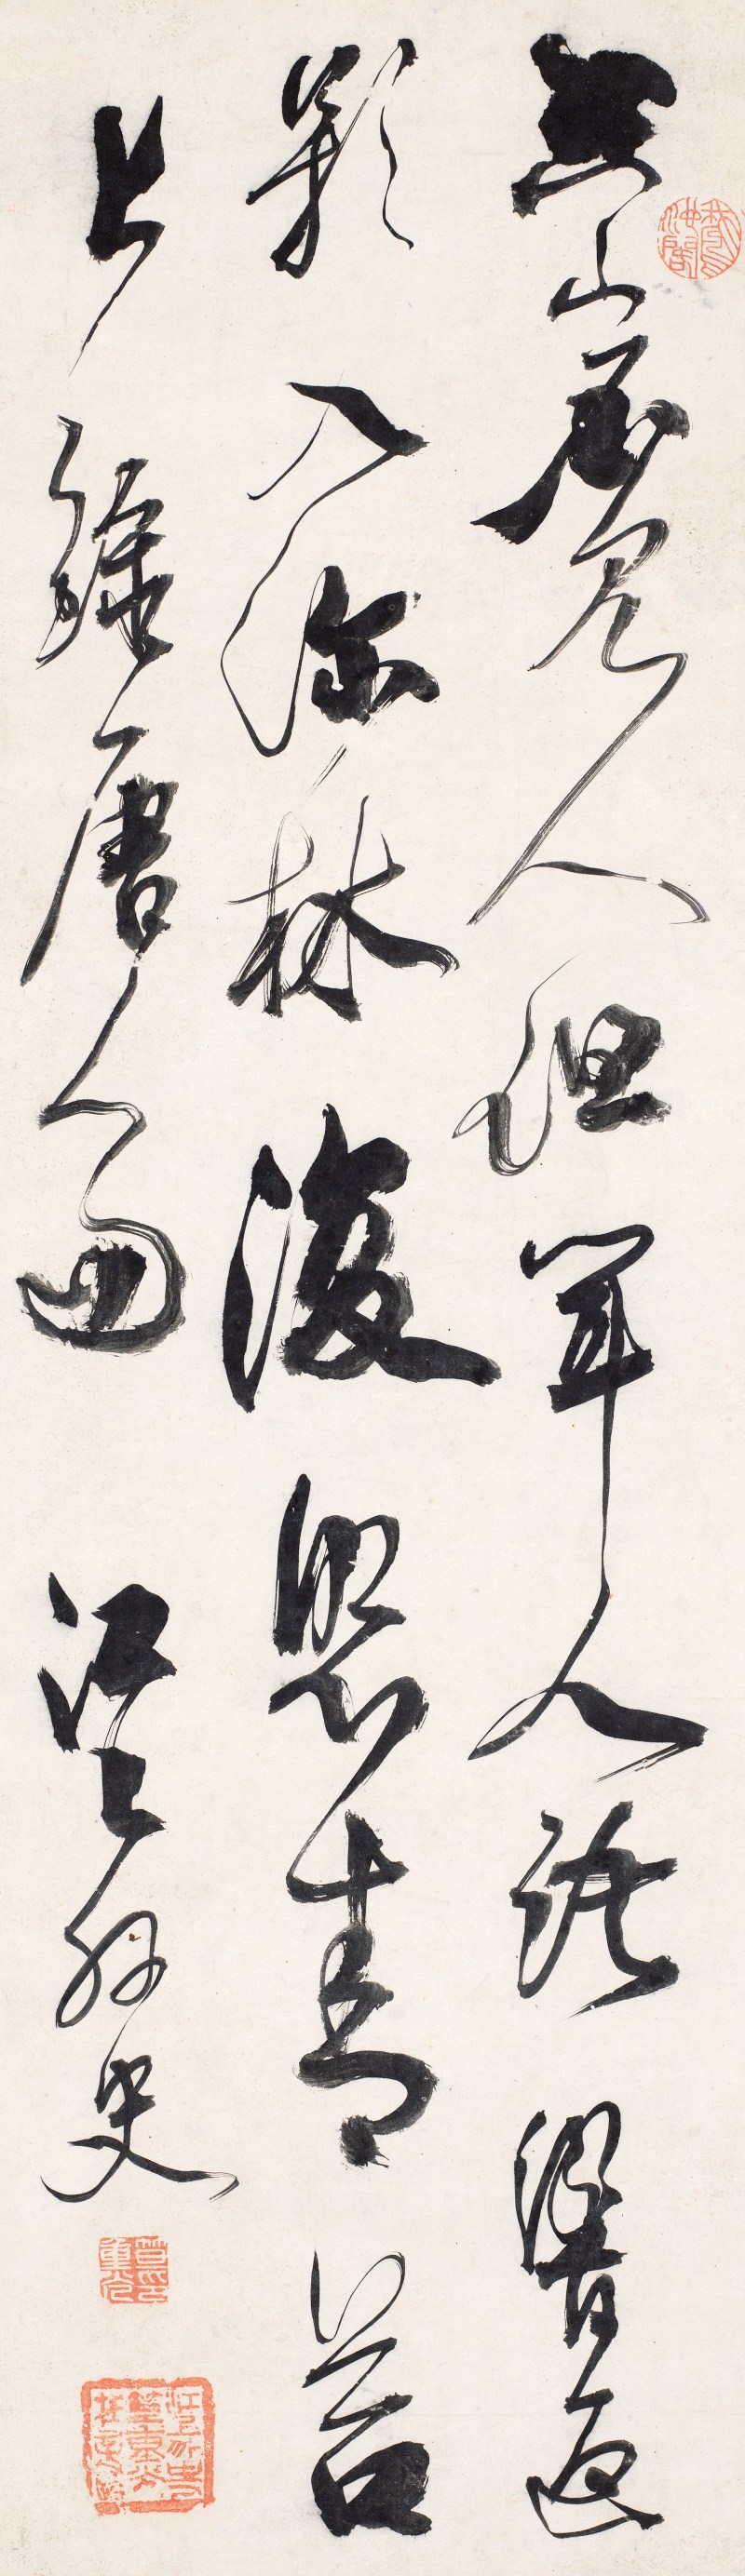 空山不見人但聞人語響返
影入深林復照青苔
上 唐人 江上外史
笪印重光